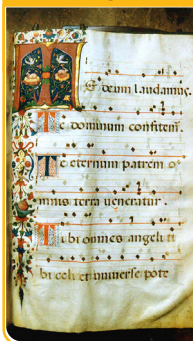 Te deum laudamus.
Te dominum confitem
Te eternum patrem o
mnis terra ueneratur.
Tibi omnes angeli ti
bi celi et uniuerse pote